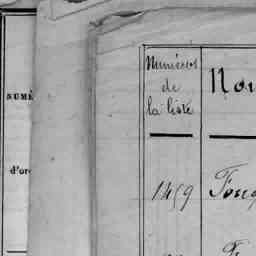 NUMÉ
d'or
Numéros
de
la liste
Nou
1459